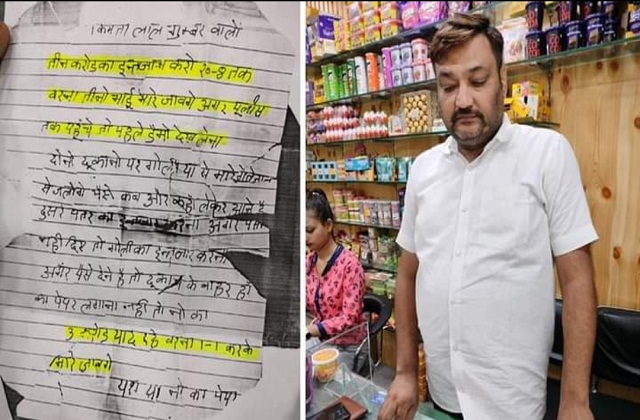 किमती लाल गुम्बर वालों
तीन करोड का इन्तजाम करो 20-8 तक
वरना तीनो भाई मारे जावगे अगर पुलीस
तक पहुंचे तो पहले डेमो देख लेना
दोनो दुकानो पर गोलीया
पैसे कब और कहा लेकर आने है
दुसरे पतर का इन्तजार करना अगर पैसे
नही दिए तो गोली का इन्तजार करना
अगर पैसे देने है तो दुकान के बाहर हां
का पेपर लगाना नही तो नो का
3 करोड याद रहे वरना 1-1 करके
मारे जावगे
यस या नो का पेपर